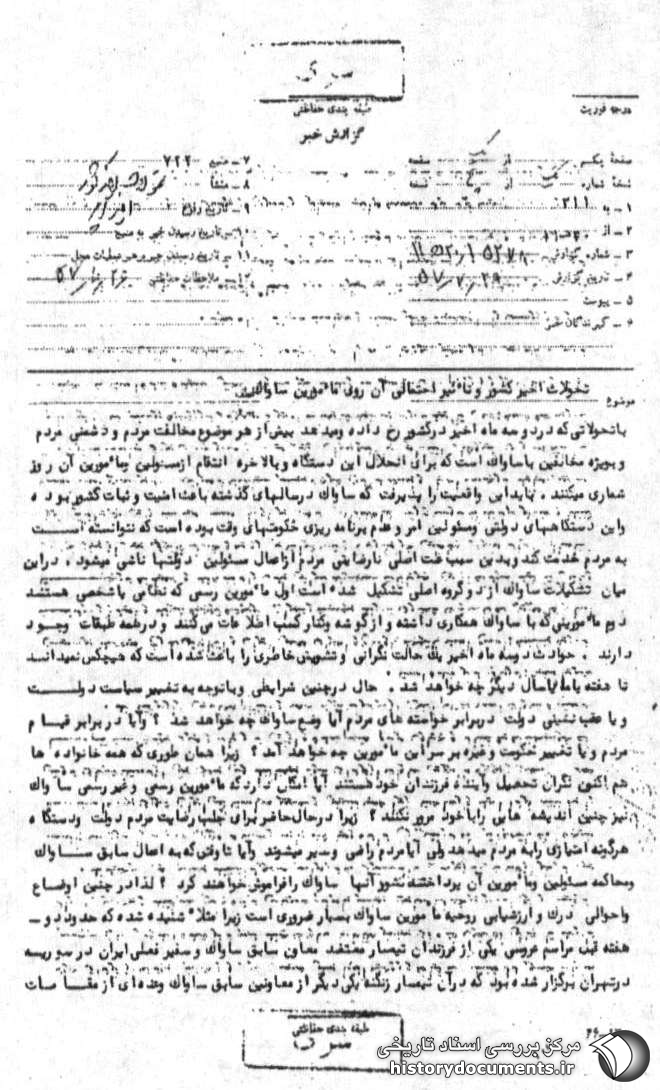 سری
طبقه بندی حفاظتی
درجه فوریت
گزارش خبر
صفحه یکم از یک صفحه
نسخه شماره از نسخه
۷ - منبع ۷۲۲
۸ - منشأ
۱ - به ۳۱۱
۹ - تاریخ وقوع
۲ - از
۱۰ - تاریخ رسیدن خبر به منبع
۳ - شماره گزارش
۱۱ - تاریخ رسیدن خبر به رهبر عملیات محل
۴ - تاریخ گزارش ۵۷/۷/۲۹
۱۲ - ملاحظات حفاظتی
۵ - پیوست
۶ - گیرندگان خبر
موضوع تحولات اخیر کشور و تأثیر احتمالی آن روی مأمورین ساواک
با تحولاتی که در دو سه ماه اخیز در کشور رخ داده و میدهد بیش از هر موضوع مخالفت مردم و دشمنی مردم
و بویژه مخالفین با ساواک است که برای انحلال این دستگاه و بالاخره انتقام از مسئولین و مأمورین آن روز
شماری میکنند . باید این واقعیت را پذیرفت که ساواک در سالهای گذشته باعث امنیت و ثبات کشور بوده
و این دستگاههای دولتی و مسئولین امر و عدم برنامه ریزی حکومتهای وقت بوده است که نتوانسته است
به مردم خدمت کند و بدین سبب علت اصلی نارضایتی مردم از اعمال مسئولین دولتها ناشی میشود . در این
میان تشکیلات ساواک از دو گروه اصلی تشکیل شده است اول مأمورین رسمی که نظامی یا شخصی هستند
دوم مأمورینی که با ساواک همکاری داشته و از گوشه و کنار کسب اطلاعات می کنند و در همه طبقات وجود
دارند . حوادث دو سه ماه اخیر یک حالت نگرانی و تشویش خاطری را باعث شده است که هیچکس نمیداند
تا هفته یا ماه یا سال دیگر چه خواهد شد . حال در چنین شرایطی و با توجه به تغییر سیاست دولت
و یا عقب نشینی دولت در برابر خواسته های مردم آیا وضع ساواک چه خواهد شد ؟ و آیا در برابر قیام
مردم و یا تغییر حکومت و غیره بر سر این مأمورین چه خواهد آمد ؟ زیرا همان طوری که همه خانواده ها
هم اکنون نگران تحصیل و آینده فرزندان خود هستند آیا امکان دارد که مأمورین رسمی و غیر رسمی ساواک
نیز چنین اندیشه هایی را با خود مرور نکنند ؟ زیرا در حال حاضر برای جلب رضایت مردم دولت و دستگاه
هرگونه امتیازی را به مردم میدهد ولی آیا مردم راضی و سیر میشوند و آیا تا وقتی که به اعمال سابق ساواک
و محاکمه مسئولین و مأمورین آن پرداخته نشود آنها ساواک را فراموش خواهند کرد ؟ لذا در چنین اوضاع
و احوالی درک و ارزشیابی روحیه مأمورین ساواک بسیار ضروری است زیرا مثلاً شنیده شده که حدود دو -
هفته قبل مراسم عروسی یکی از فرزندان تیمسار معتضد معاون سابق ساواک و سفیر فعلی ایران در سوریه
در تهران برگزار شده بود که در آن تیمسار زنگنه یکی دیگر از معاونین سابق ساواک و عده ای از مقامات
طبقه بندی حفاظتی
سری
مرکز بررسی اسناد تاریخی
historydocuments.ir